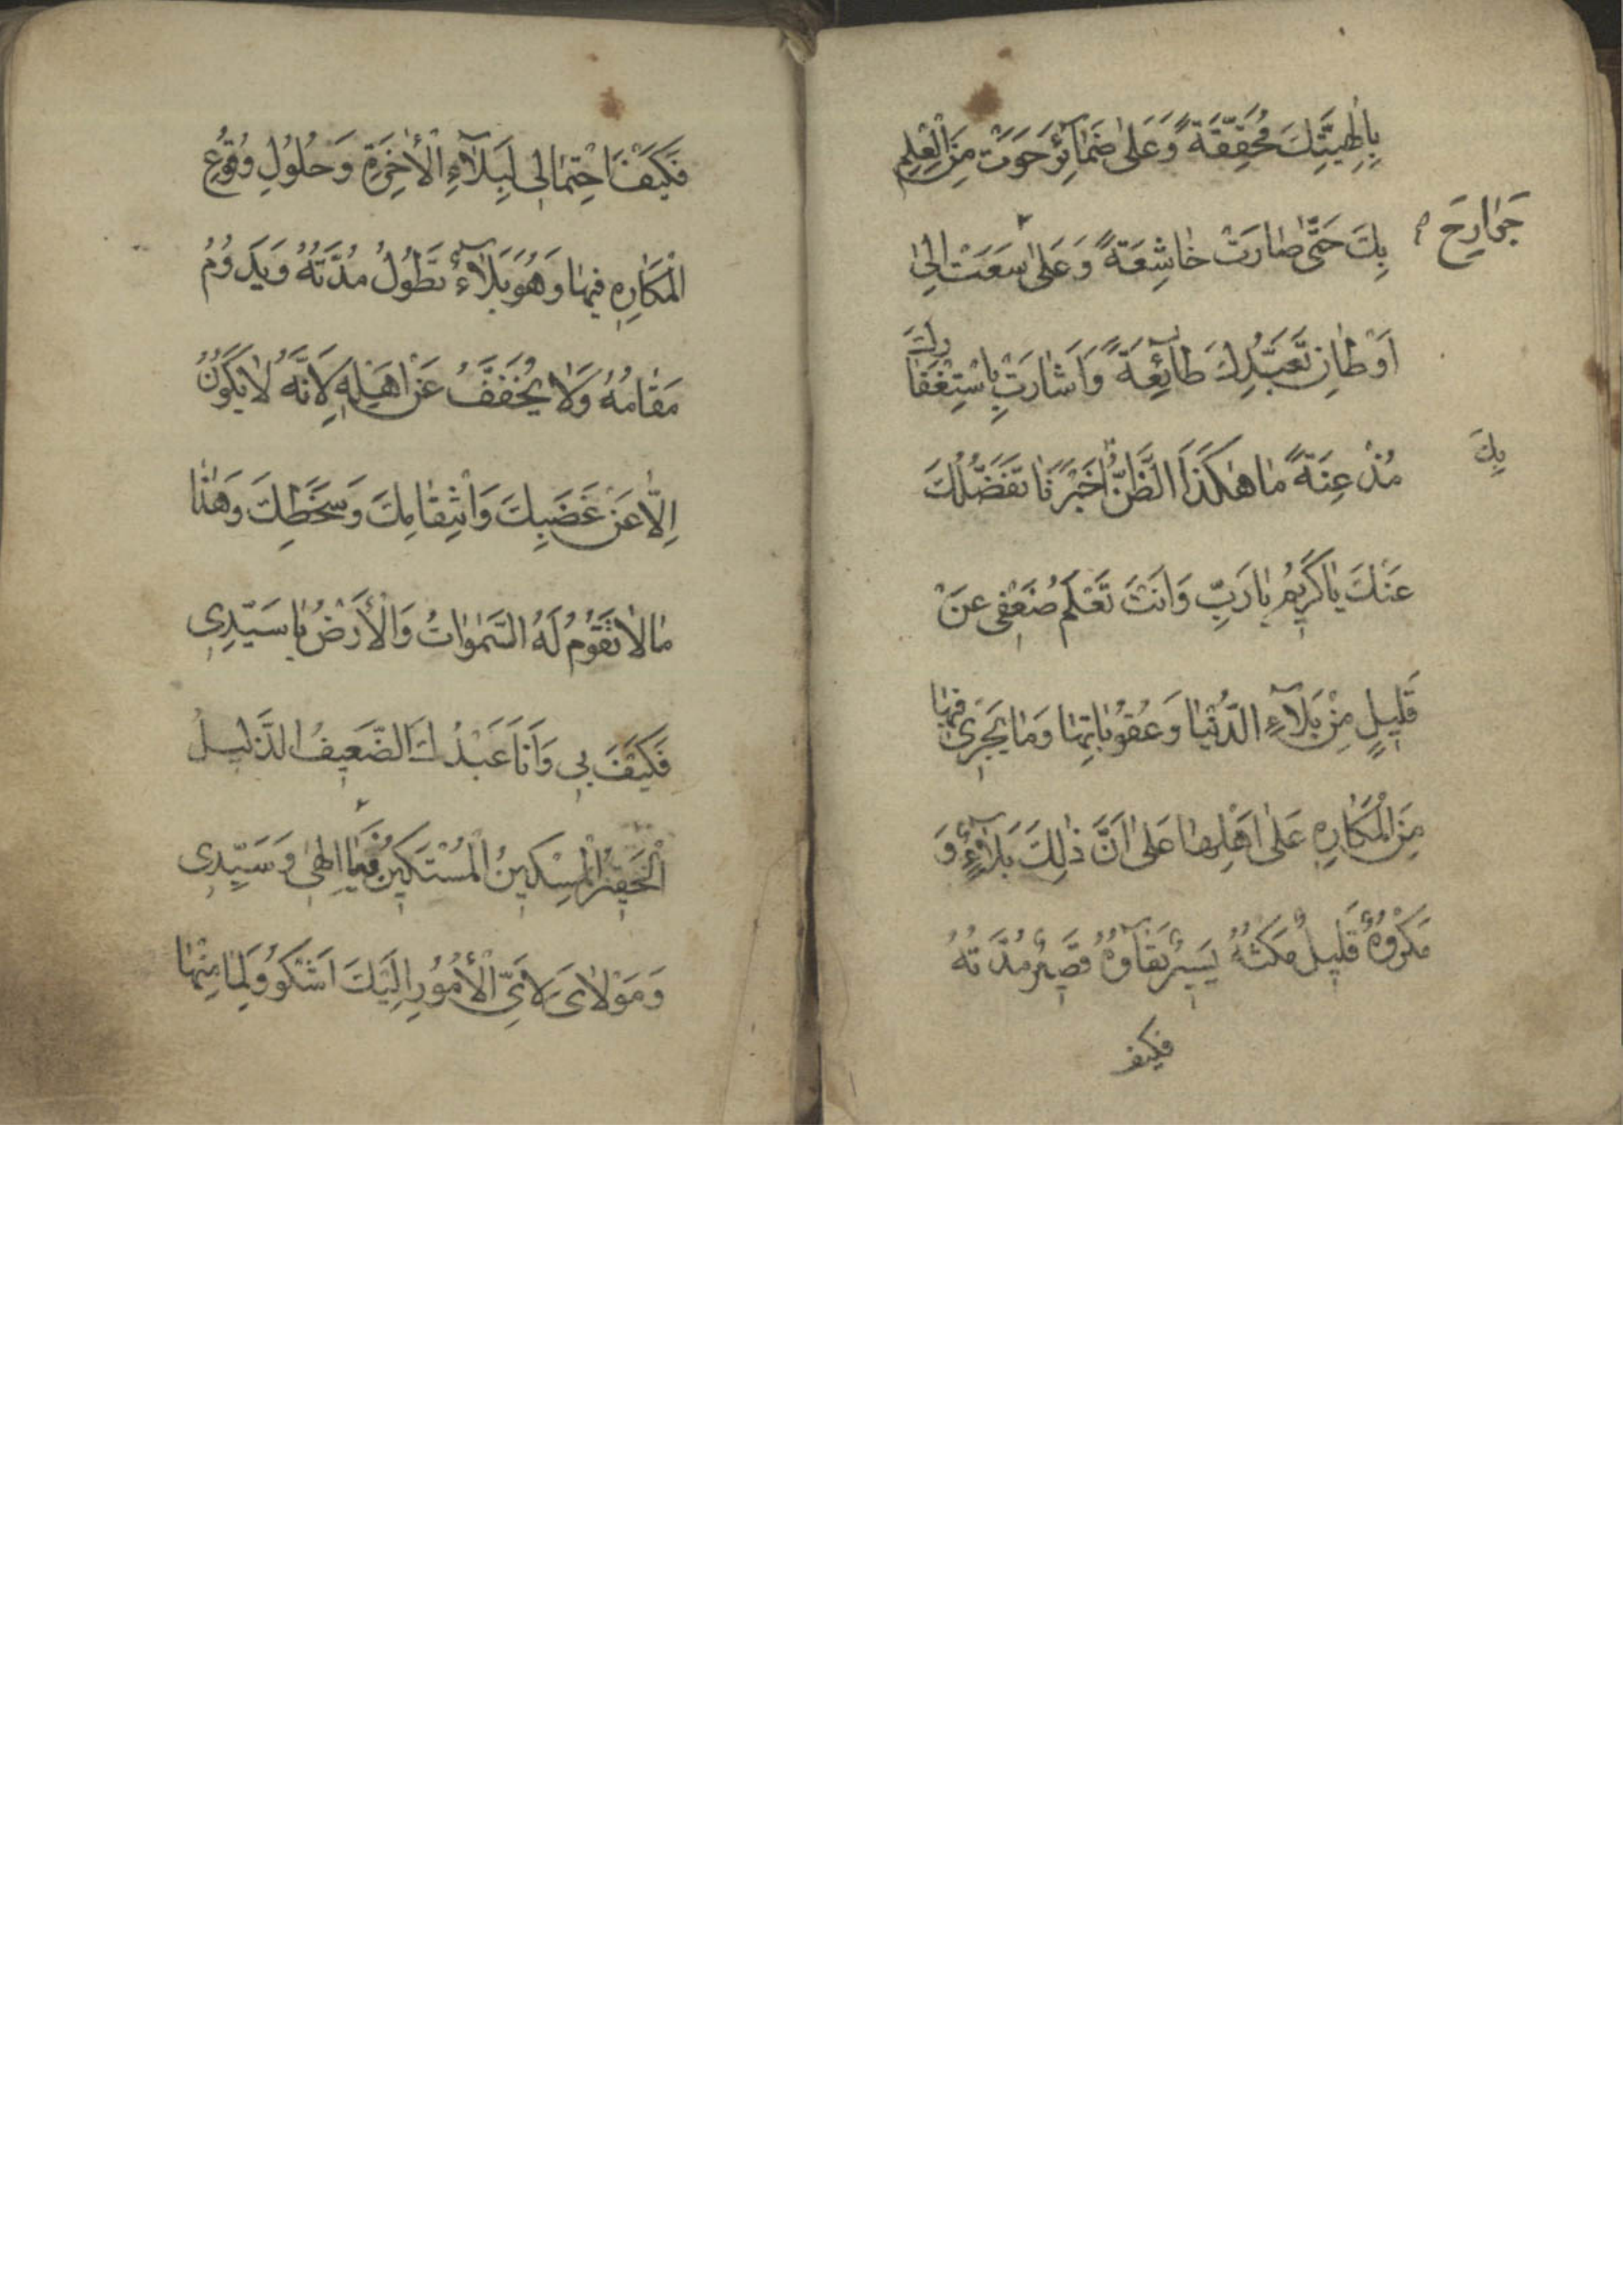 بِاِلٰهِيَّتِكَ مُحَقِّقَةً وَعَلىٰ ضَمٰآئِرَ حَوَتْ مِنَ الْعِلْمِ
بِكَ حَتّٰى صٰارَتْ خٰاشِعَةً وَعَلىٰ سَعَتْ اِلىٰ
جَوٰارِحَ
اَوْطٰانِ تَعَبُّدِكَ طٰآئِعَةً وَاَشٰارَتْ بِاسْتِغْفٰارِكَ
مُذْعِنَةً مٰا هٰكَذَا الظَّنُّ اُخْبِرْنٰا بِفَضْلِكَ
بِكَ
عَنْكَ يٰا كَرِيمُ يٰا رَبِّ وَاَنْتَ تَعْلَمُ ضَعْفِى عَنْ
قَلِيلٍ مِنْ بَلٰآءِ الدُّنْيٰا وَعُقُوبٰاتِهٰا وَمٰا يَجْرِى فِيهٰا
مِنَ الْمَكٰارِهِ عَلىٰ اَهْلِهٰا عَلىٰ اَنَّ ذٰلِكَ بَلٰآءٌ وَ
مَكْرُوهٌ قَلِيلٌ مَكْثُهُ يَسِيرٌ بَقٰآؤُهُ قَصِيرٌ مُدَّتُهُ
فكيف
فَكَيْفَ احْتِمٰالِى لِبَلٰآءِ الْاٰخِرَةِ وَحُلُولِ وُقُوعِ
الْمَكٰارِهِ فِيهٰا وَهُوَ بَلٰآءٌ تَطُولُ مُدَّتُهُ وَيَدُومُ
مَقٰامُهُ وَلٰا يُخَفَّفُ عَنْ اَهْلِهِ لِاَنَّهُ لٰا يَكُونُ
اِلّٰا عَنْ غَضَبِكَ وَانْتِقٰامِكَ وَسَخَطِكَ وَهٰذٰا
مٰا لٰا تَقُومُ لَهُ السَّمٰوٰاتُ وَالْاَرْضُ يٰا سَيِّدِى
فَكَيْفَ بِى وَاَنَا عَبْدُكَ الضَّعِيفُ الذَّلِيلُ
الْحَقِيرُ الْمِسْكِينُ الْمُسْتَكِينُ فَيٰا اِلٰهِى وَسَيِّدِى
وَمَوْلٰاىَ لِاَىِّ الْاُمُورِ اِلَيْكَ اَشْكُو وَلِمٰا مِنْهٰا